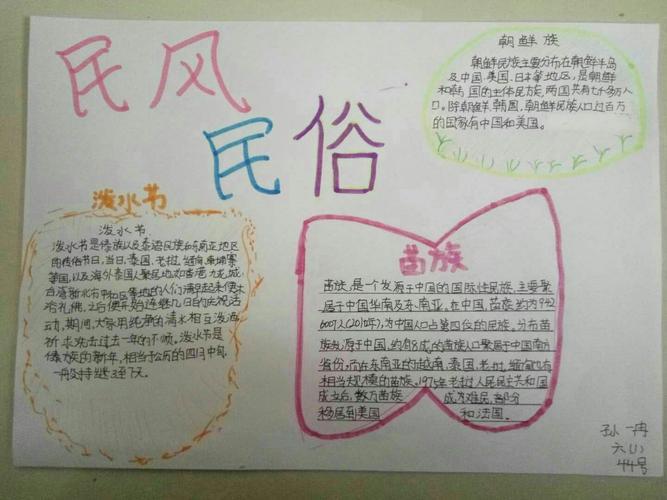 民风
民俗
朝鲜族
朝鲜民族主要分布在朝鲜半岛
及中国、美国、日本等地区，是朝鲜
和韩国的主体民族，两国共有七千多万人
口。除朝鲜、韩国，朝鲜民族人口过百万
的国家有中国和美国。
泼水节
泼水节
泼水节是傣族以及泰语民族和东南亚地区
的传统节日，当日，泰国、老挝、缅甸、柬埔寨
等国，以及海外泰国人聚居地如香港九龙城、
台湾新北市中和区等地的人们清早起来便沐
浴礼佛，之后便开始连续几日的庆祝活
动，期间，大家用纯净的清水相互泼洒，
祈求洗去过去一年的不顺。泼水节是
傣族的新年，相当于公历的四月中旬，
一般持续3至7天。
苗族
苗族，是一个发源于中国的国际性民族，主要聚
居于中国华南及东南亚。在中国，苗族约为942
6007人(2010年)，为中国人口占第四位的民族。分布苗
族发源于中国，约有8成的苗族人口聚居于中国南方
省份。而在东南亚的越南、泰国、老挝、缅甸也有
相当大规模的苗族。1975年老挝人民民主共和国
成立后，数万苗族 成为难民，部分
移居到美国 和法国。
孙一冉
六(1)
44号